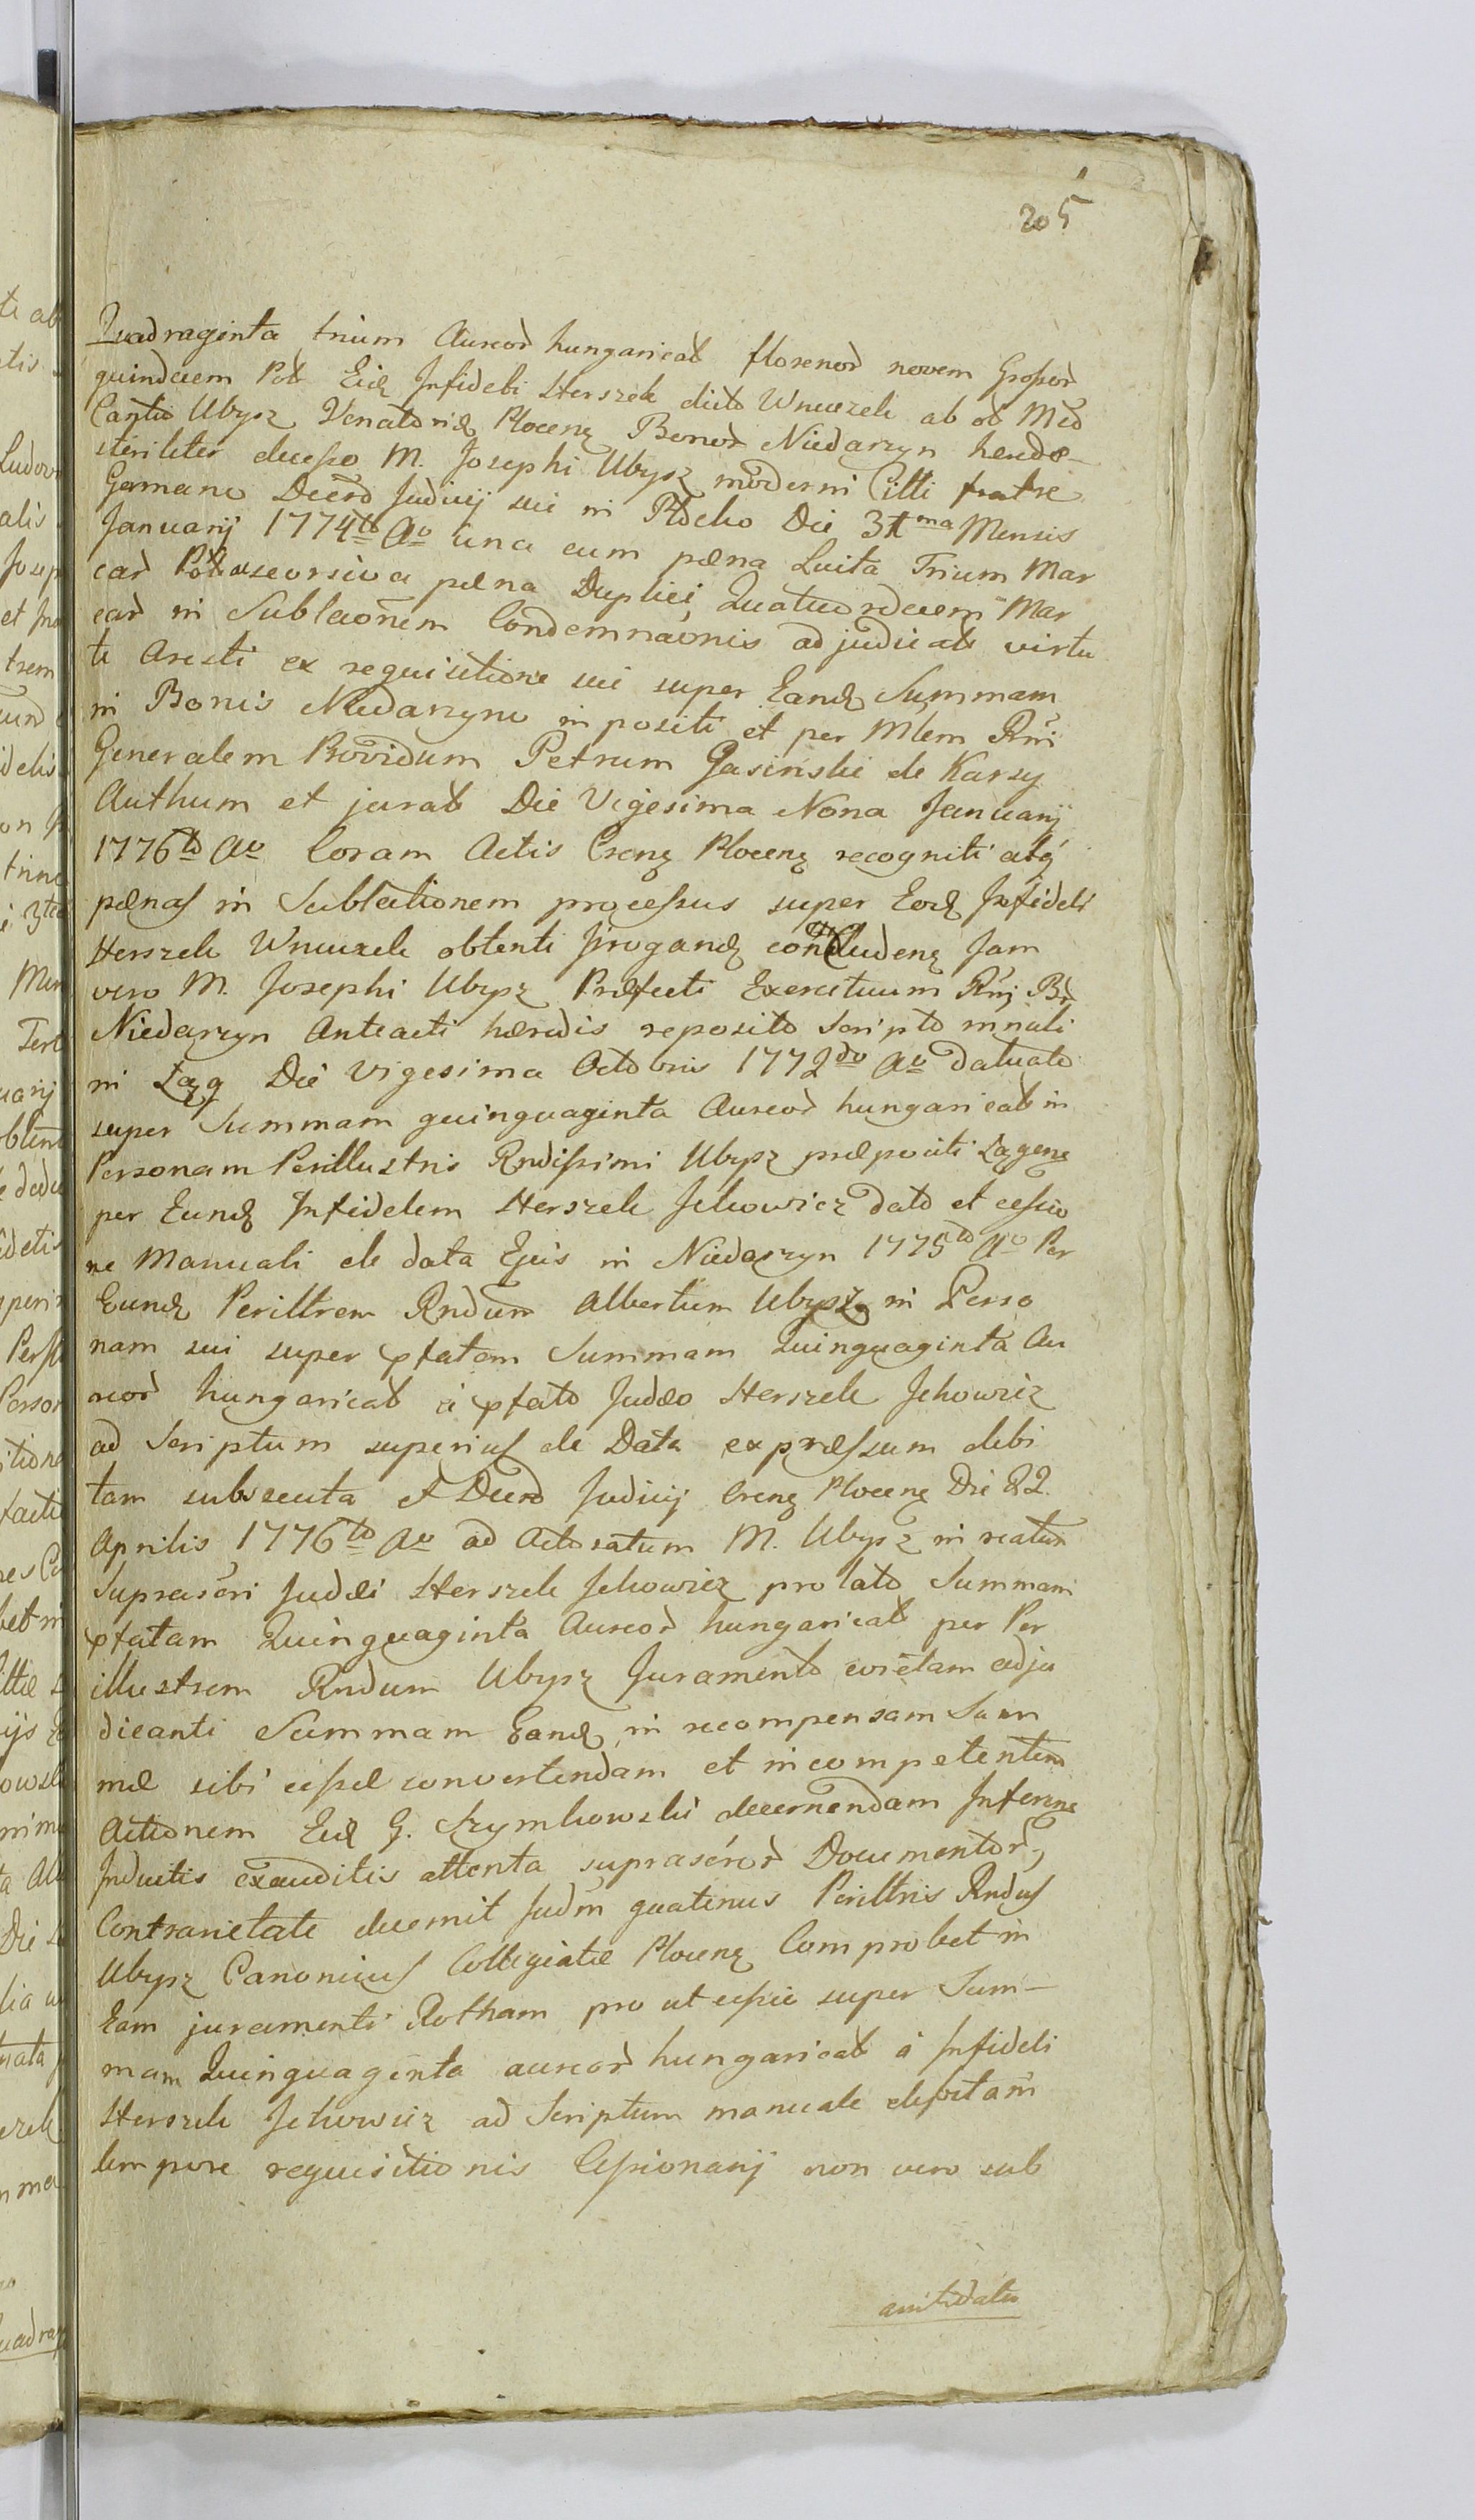 205
Quadraginta trium Aureoꝝ hungaricał florenoꝝ novem Grossoꝝ
quindecem Pol Eid̃ Infideli Herszek dicto Wnuczek ab ol M̃co
Cantio Ubysz Venatorid̃ Plocen̨ Bonoꝝ Niedarzyn hærede
steriliter decesso M. Josephi Ubysz moderni Citti fratre
Germano Decr̃o Judicij sui in Płocko Die 31ma Mensis
Januarij 1774to Ao una cum pæna Luita Trium Mar
caꝝ Pol ac seorsiva pæna Duplici Quatuordecem Mar
caꝝ in Sublaõnem Condemnãonis adjudicał virtu
te Aresti ex requisitione sui super Eand̃ Summam
in Bonis Niedarzyno impositi et per Mlem Rñi
Generalem Providum Petrum Gasinski de Karsy
Authum et jurał Die Vigesima Nona Januarij
1776to Ao Coram Actis Cren̨ Plocen̨ recogniti atq̃
pænas in Sublationem processus super Eod̃ Infideli
Herszek Wnuczek obtenti irrogand̃ concluden̨ Jam
vero M. Josephi Ubysz Præfecti Exercituum Rñij Br̃
Niedarzyn Anteacti hæredis reposito Scripto mnali
in Łąg Die Vigesima Octobris 1772do Ao datuato
super Summam quinquaginta Aureoꝝ hungaricał in
Personam Perillustris Rndissimi Ubysz præpositi Łągen̨
per Eund̃ Infidelem Herszek Jckowicz dato et cessio
ne Manuali de data Ejus in Niedarzyn 1775to Ao Per
Eund̃ Perilltrem Rndum Albertum Ubysz in Perso
nam sui super p̃fatam Summam Quinquaginta Au
reoꝝ hungaricał à p̃fato Judæo Herszek Jckowicz
ad Scriptum superius de Data expræssum debi
tam subsecuta et Decr̃o Judicij Cren̨ Plocen̨ Die 22
Aprilis 1776to Ao ad Actoratum M. Ubysz in reatum
Suprascri Judæi Herszek Jckowicz prolato Summam
p̃fatam Quinquaginta Aureoꝝ hungaricał per Per
illustrem Rndum Ubysz Juramento evictam adju
dicanti Summam Eand̃ in recompensam Sum
mæ sibi cessæ convertendam et in competentem
Actionem Eid̃ G. Szymkowski decernendam Inferen̨
Induitis exauditis attenta suprascroꝝ Documentoꝝ
Contrarietate decernit Judm quatenus Perilltris Rndus
Ubysz Canonicus Collegiatæ Plocen̨ Comprobet in
Eam juramenti Rotham pro ut cessio super Sum-
mam Quinquaginta aureoꝝ hungaricał à Infideli
Herszek Jckowicz ad Scriptum manuale debitam
tempore requisitionis Cessionarij non vero sub
antidatu